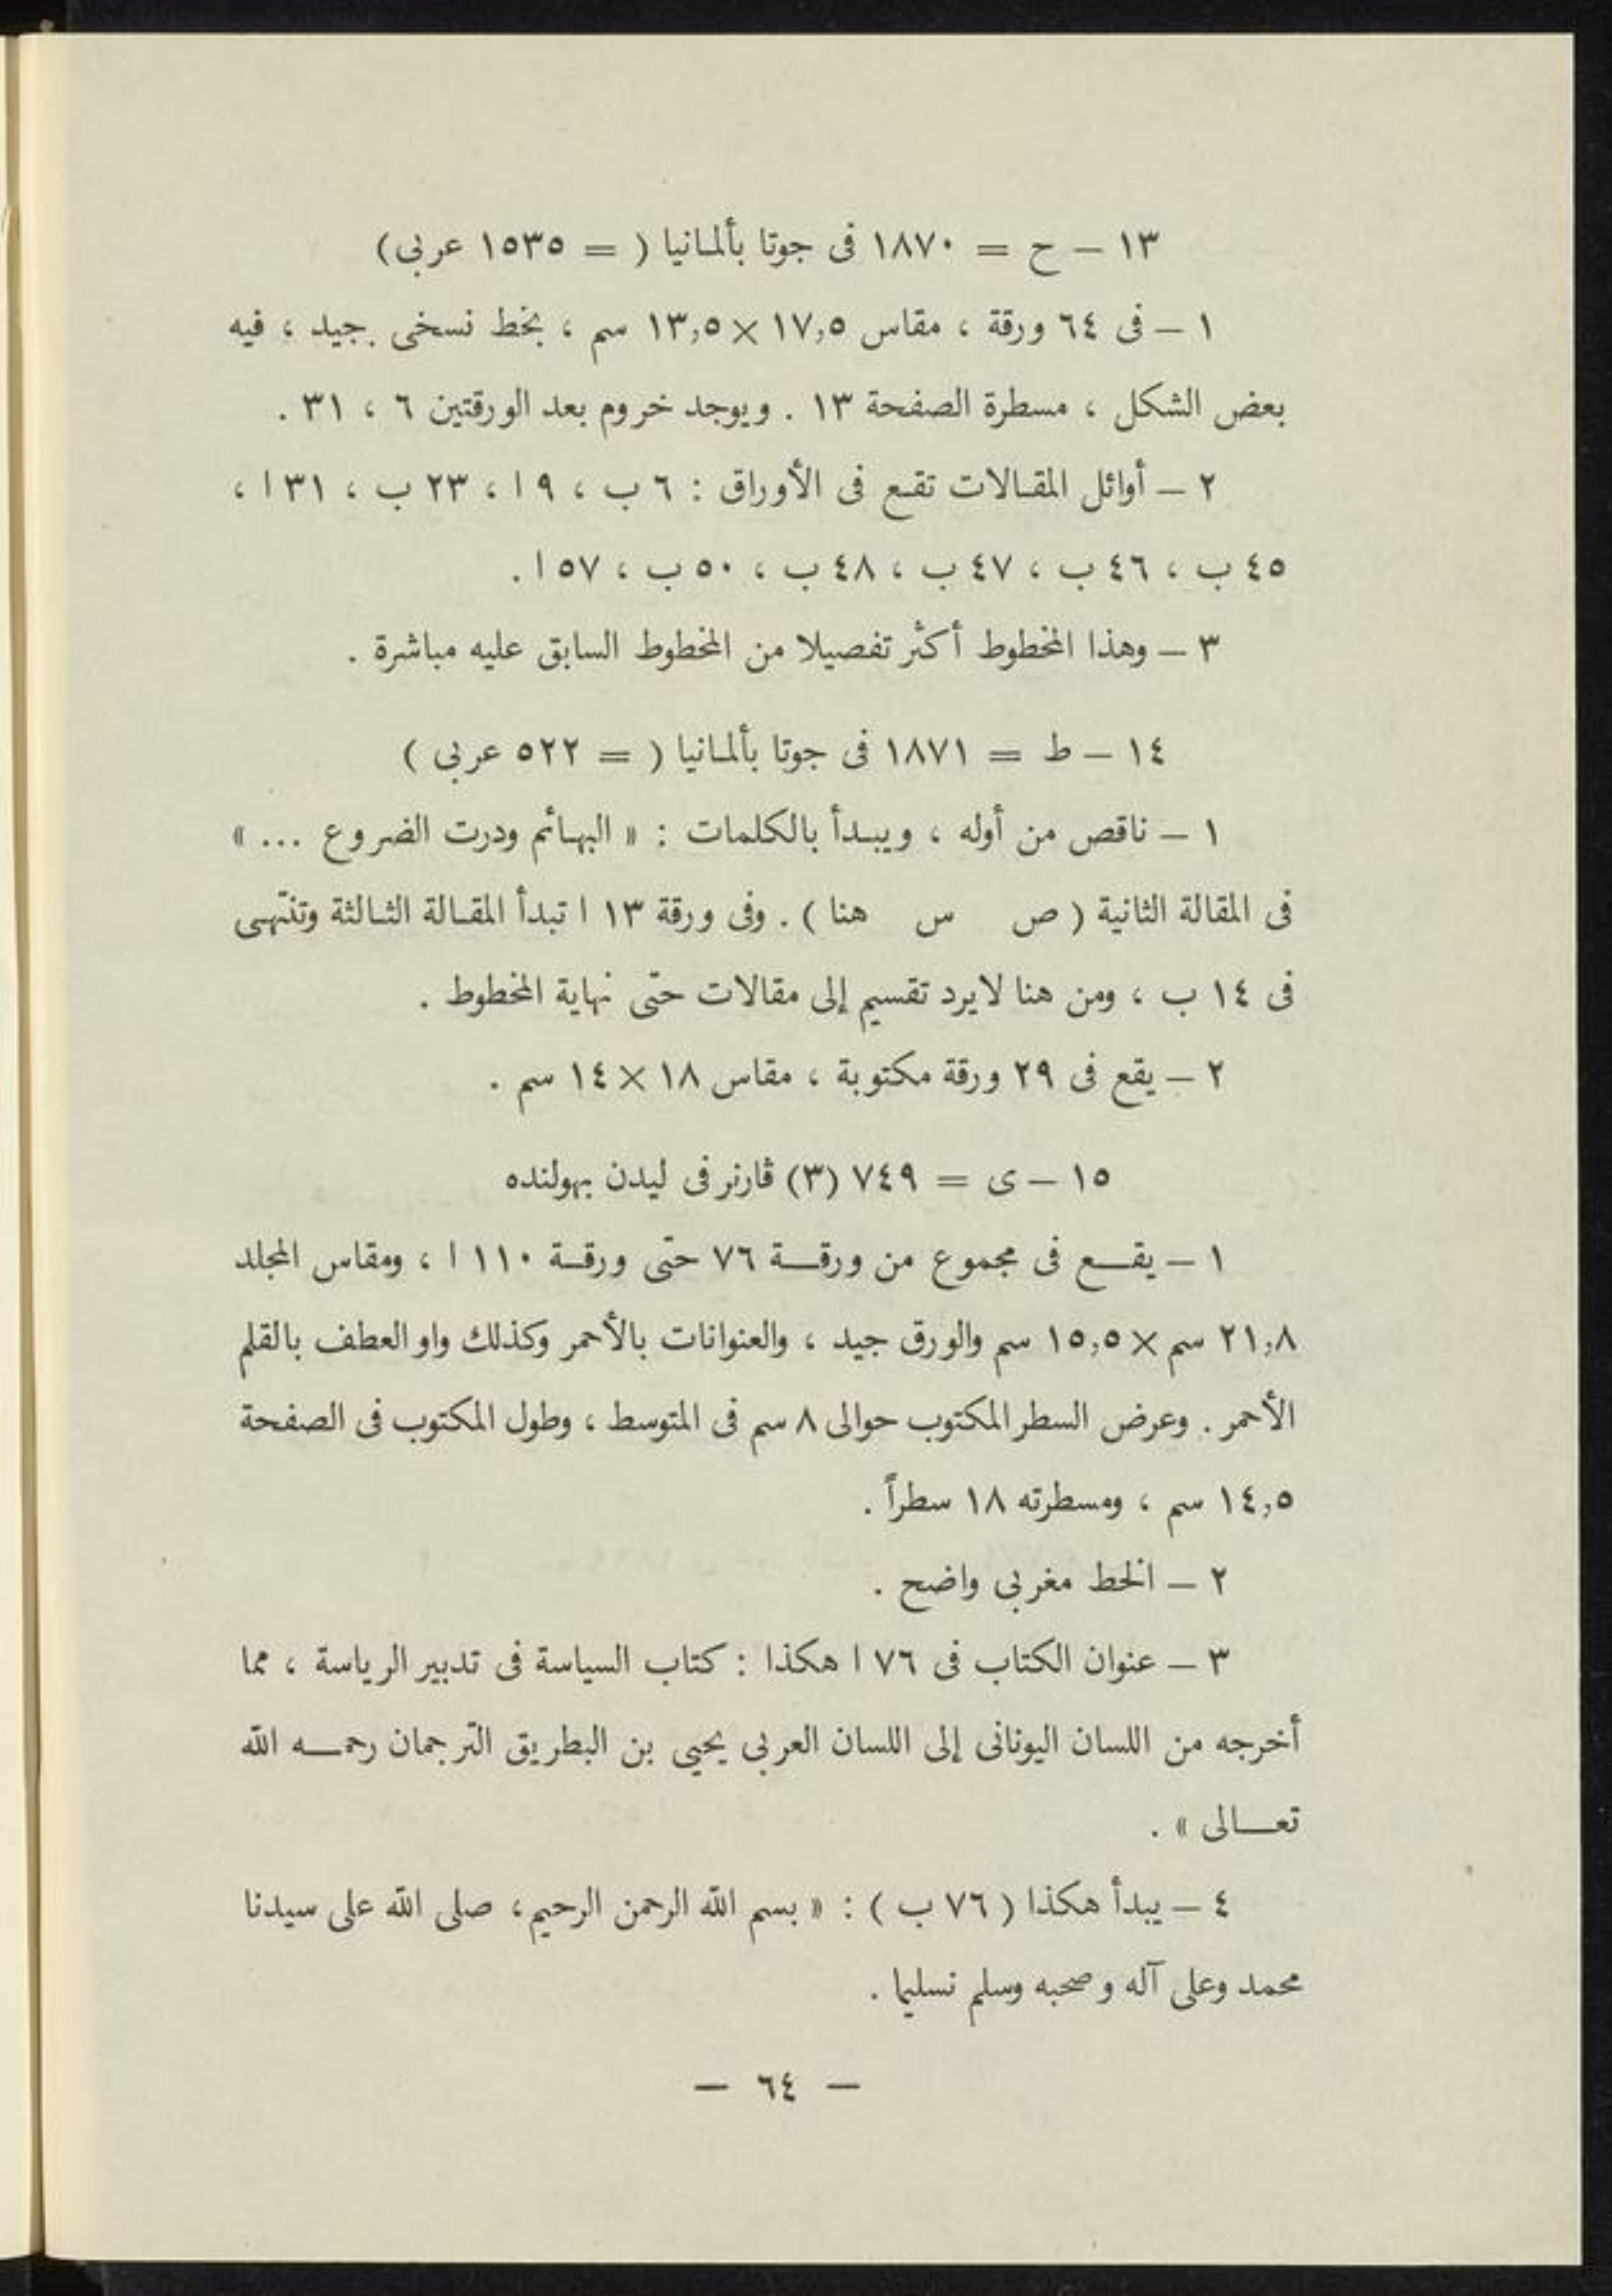 ١٣ — ح = ١٨٧٠ فى جوتا بألمانيا ( = ١٥٣٥ عربى)
١ — فى ٦٤ ورقة ، مقاس ١٧,٥ × ١٣,٥ سم ، بخط نسخى جيد ، فيه
بعض الشكل ، مسطرة الصفحة ١٣ . ويوجد خروم بعد الورقتين ٦ ، ٣١ .
٢ — أوائل المقالات تقع فى الأوراق : ٦ ب ، ٩ ا ، ٢٣ ب ، ٣١ ا ،
٤٥ ب ، ٤٦ ب ، ٤٧ ب ، ٤٨ ب ، ٥٠ ب ، ٥٧ ا .
٣ — وهذا المخطوط أكثر تفصيلا من المخطوط السابق عليه مباشرة .
١٤ — ط = ١٨٧١ فى جوتا بألمانيا ( = ٥٢٢ عربى )
١ — ناقص من أوله ، ويبدأ بالكلمات : « البهائم ودرت الضروع ... »
فى المقالة الثانية ( ص س هنا ) . وفى ورقة ١٣ ا تبدأ المقالة الثالثة وتنتهى
فى ١٤ ب ، ومن هنا لايرد تقسيم إلى مقالات حتى نهاية المخطوط .
٢ — يقع فى ٢٩ ورقة مكتوبة ، مقاس ١٨ × ١٤ سم .
١٥ — ى = ٧٤٩ (٣) ڤارنر فى ليدن بهولنده
١ — يقع فى مجموع من ورقة ٧٦ حتى ورقة ١١٠ ا ، ومقاس المجلد
٢١,٨ سم × ١٥,٥ سم والورق جيد ، والعنوانات بالأحمر وكذلك واو العطف بالقلم
الأحمر . وعرض السطر المكتوب حوالى ٨ سم فى المتوسط ، وطول المكتوب فى الصفحة
١٤,٥ سم ، ومسطرته ١٨ سطراً .
٢ — الخط مغربى واضح .
٣ — عنوان الكتاب فى ٧٦ ا هكذا : كتاب السياسة فى تدبير الرياسة ، مما
أخرجه من اللسان اليونانى إلى اللسان العربى يحيى بن البطريق الترجمان رحمه الله
تعالى » .
٤ — يبدأ هكذا ( ٧٦ ب ) : « بسم الله الرحمن الرحيم ، صلى الله على سيدنا
محمد وعلى آله وصحبه وسلم تسليما .
— ٦٤ —